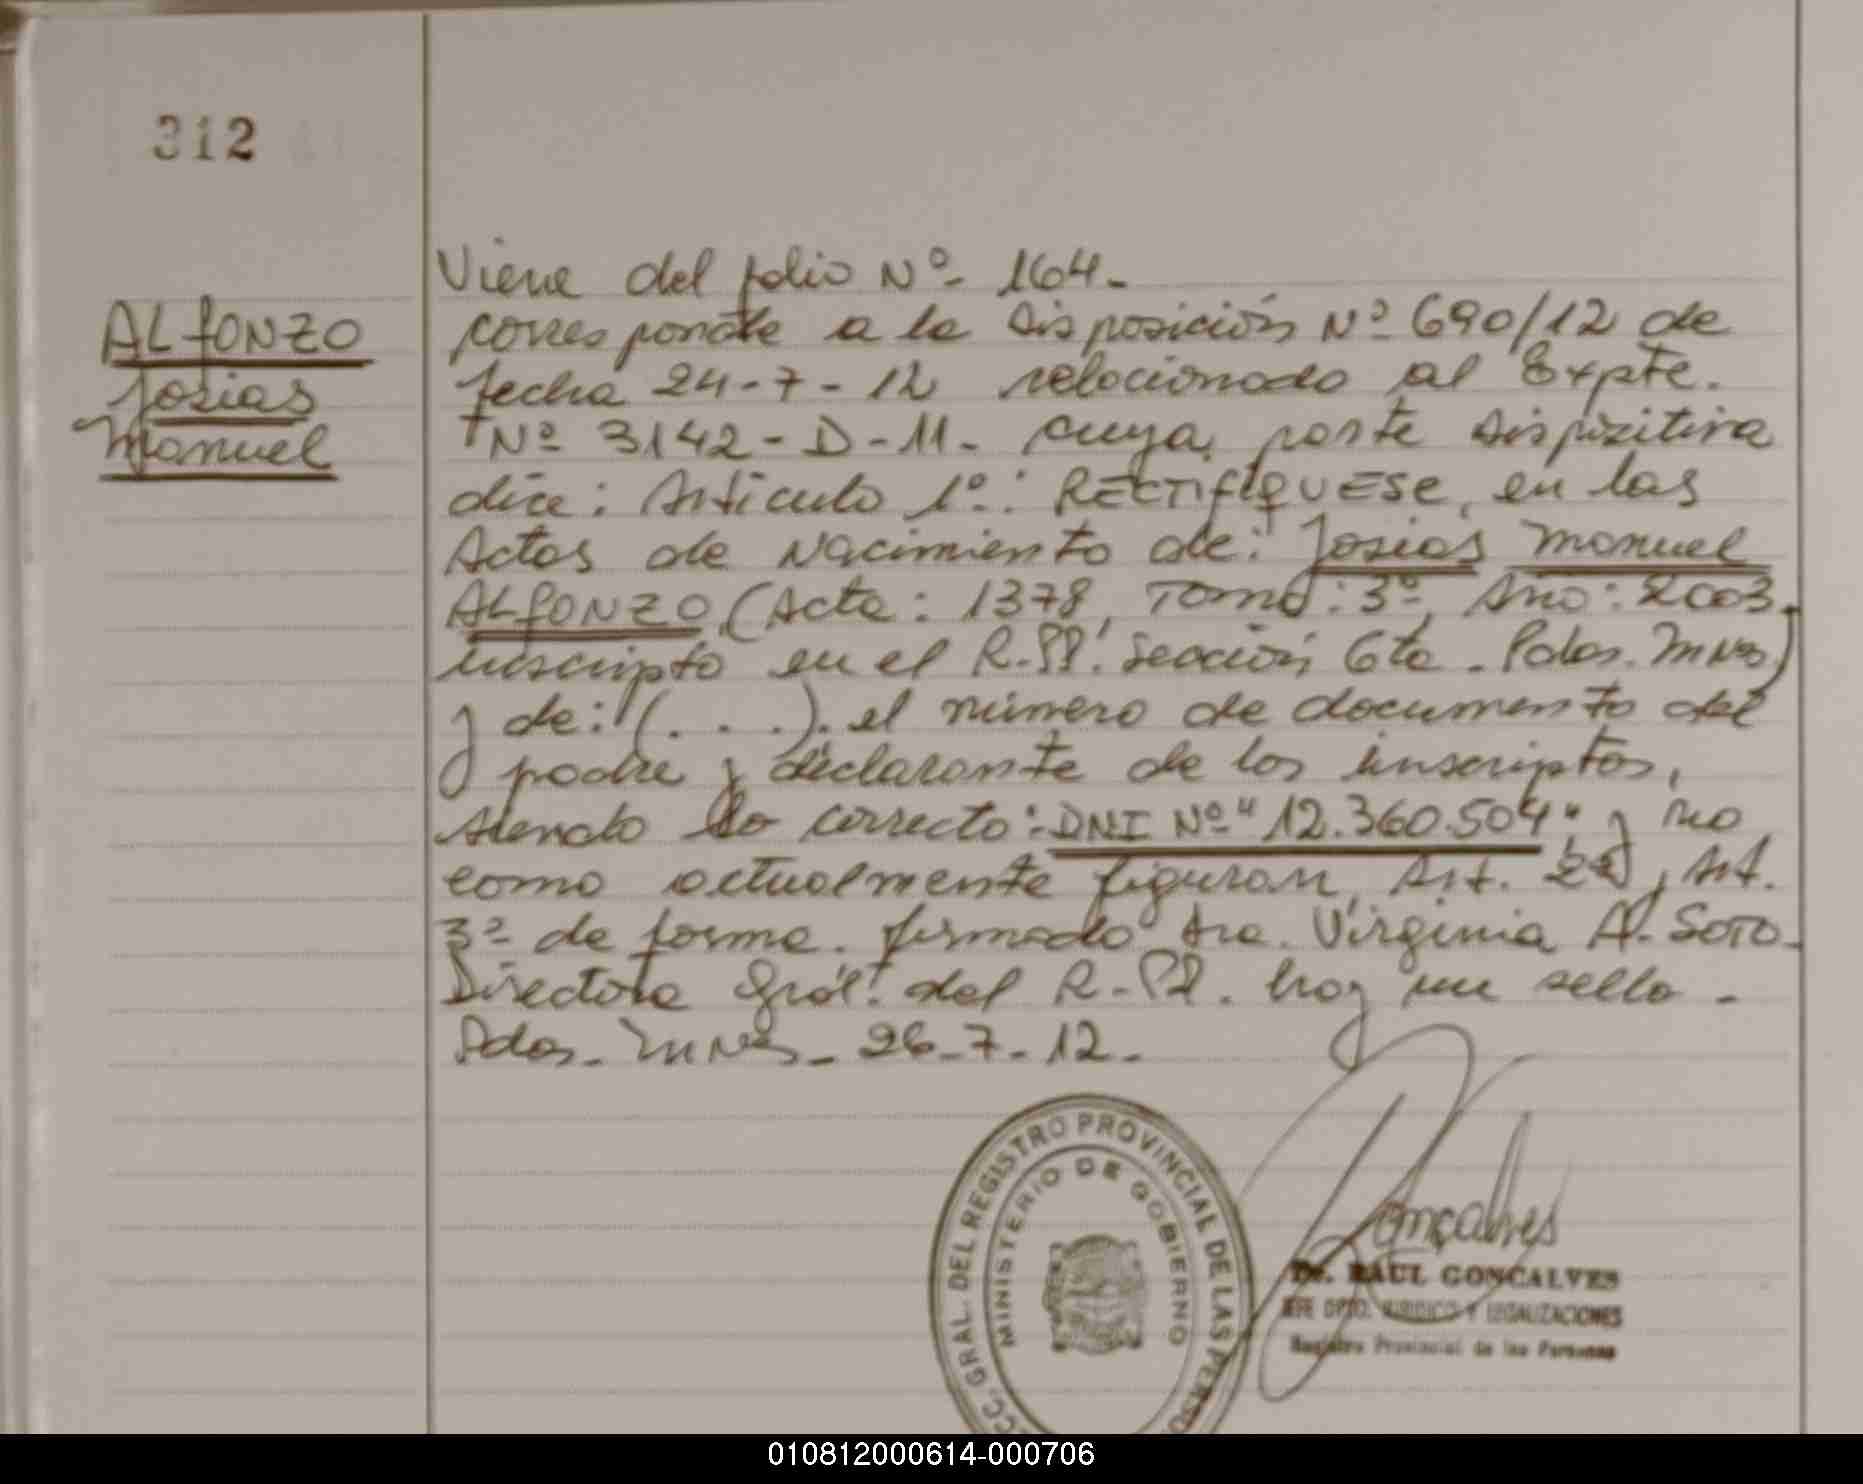 312
ALFONZO
Josias
Manuel
Viene del folio Nº 164.
corresponde a la disposición Nº 690/12 de
fecha 24-7-12 relacionado al Expte.
Nº 3142-D-11. cuya parte dispositiva
dice: Artículo 1º: RECTIFIQUESE, en las
Actas de Nacimiento de: Josias Manuel
ALFONZO (Acta: 1378, Tomo: 3º, Año: 2003.
inscripto en el R.PP. Sección 6ta. Pdas. Mnes)
y de: (...). el número de documento del
padre y declarante de los inscriptos,
siendo lo correcto: DNI Nº "12.360.504" y no
como actualmente figuran, Art. 2º, Art.
3º de forma. firmado Sra. Virginia A. Soto.
Directora Gral. del R.PP. hay un sello.
Pdas. Mnes. 26-7-12.
CC. GRAL. DEL REGISTRO PROVINCIAL DE LAS PERSO
MINISTERIO DE GOBIERNO
Gonçalves
Dr. RAUL GONCALVES
JEFE DPTO. JURIDICO Y LEGALIZACIONES
Registro Provincial de las Personas
010812000614-000706